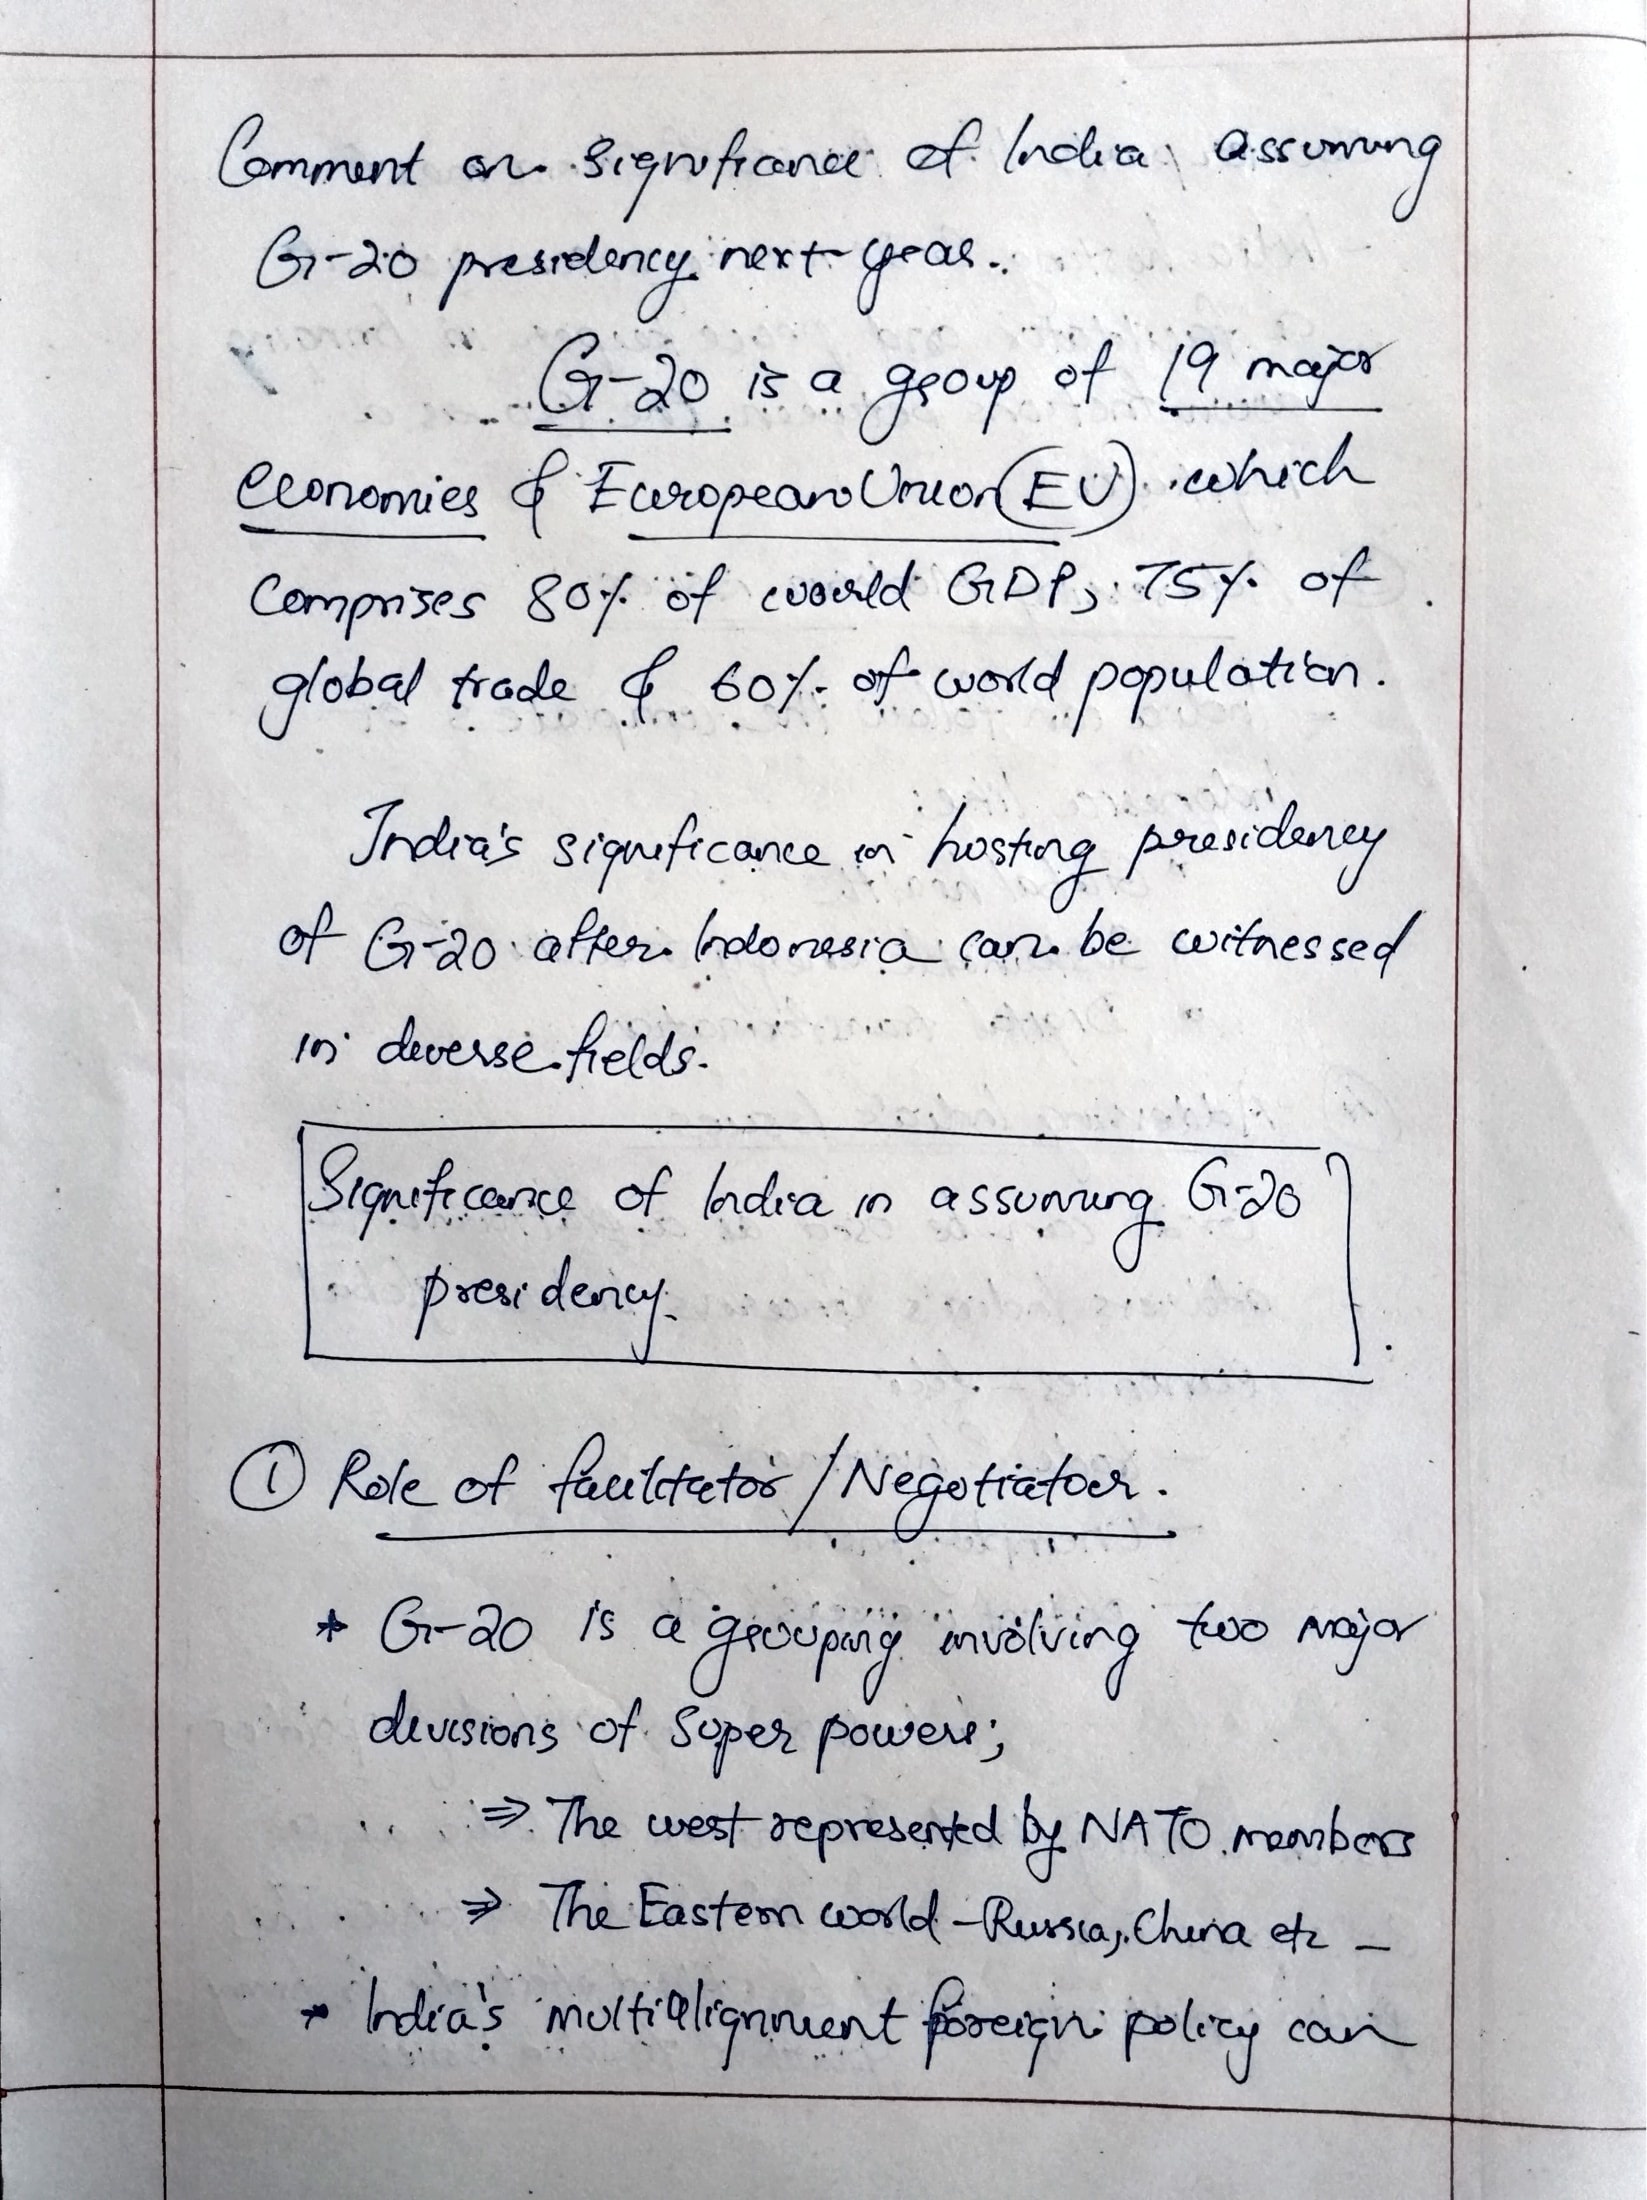 Comment on significance of India assuming
G-20 presidency next year.
G-20 is a group of 19 major
economies & European Union (EU) which
comprises 80% of world GDP, 75% of
global trade & 60% of world population.
India's significance in hosting presidency
of G-20 after Indonesia can be witnessed
in diverse fields.
Significance of India in assuming G-20
presidency.
① Role of facilitator / Negotiator.
* G-20 is a grouping involving two major
divisions of super powers;
⇒ The west represented by NATO members
⇒ The Eastern world - Russia, China etc -
* India's multialignment foreign policy can